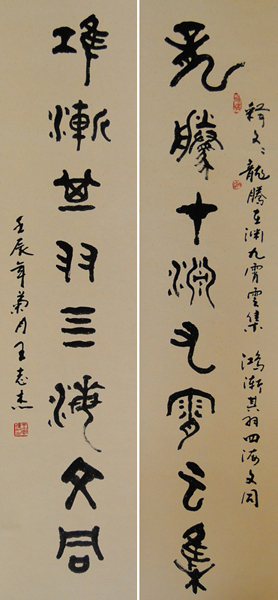 釋文：龍騰在渊九霄雲集 鴻漸其羽四海文同
龍騰才淵九霄云集
鴻漸其羽亖海文同
壬辰年菊月王志杰